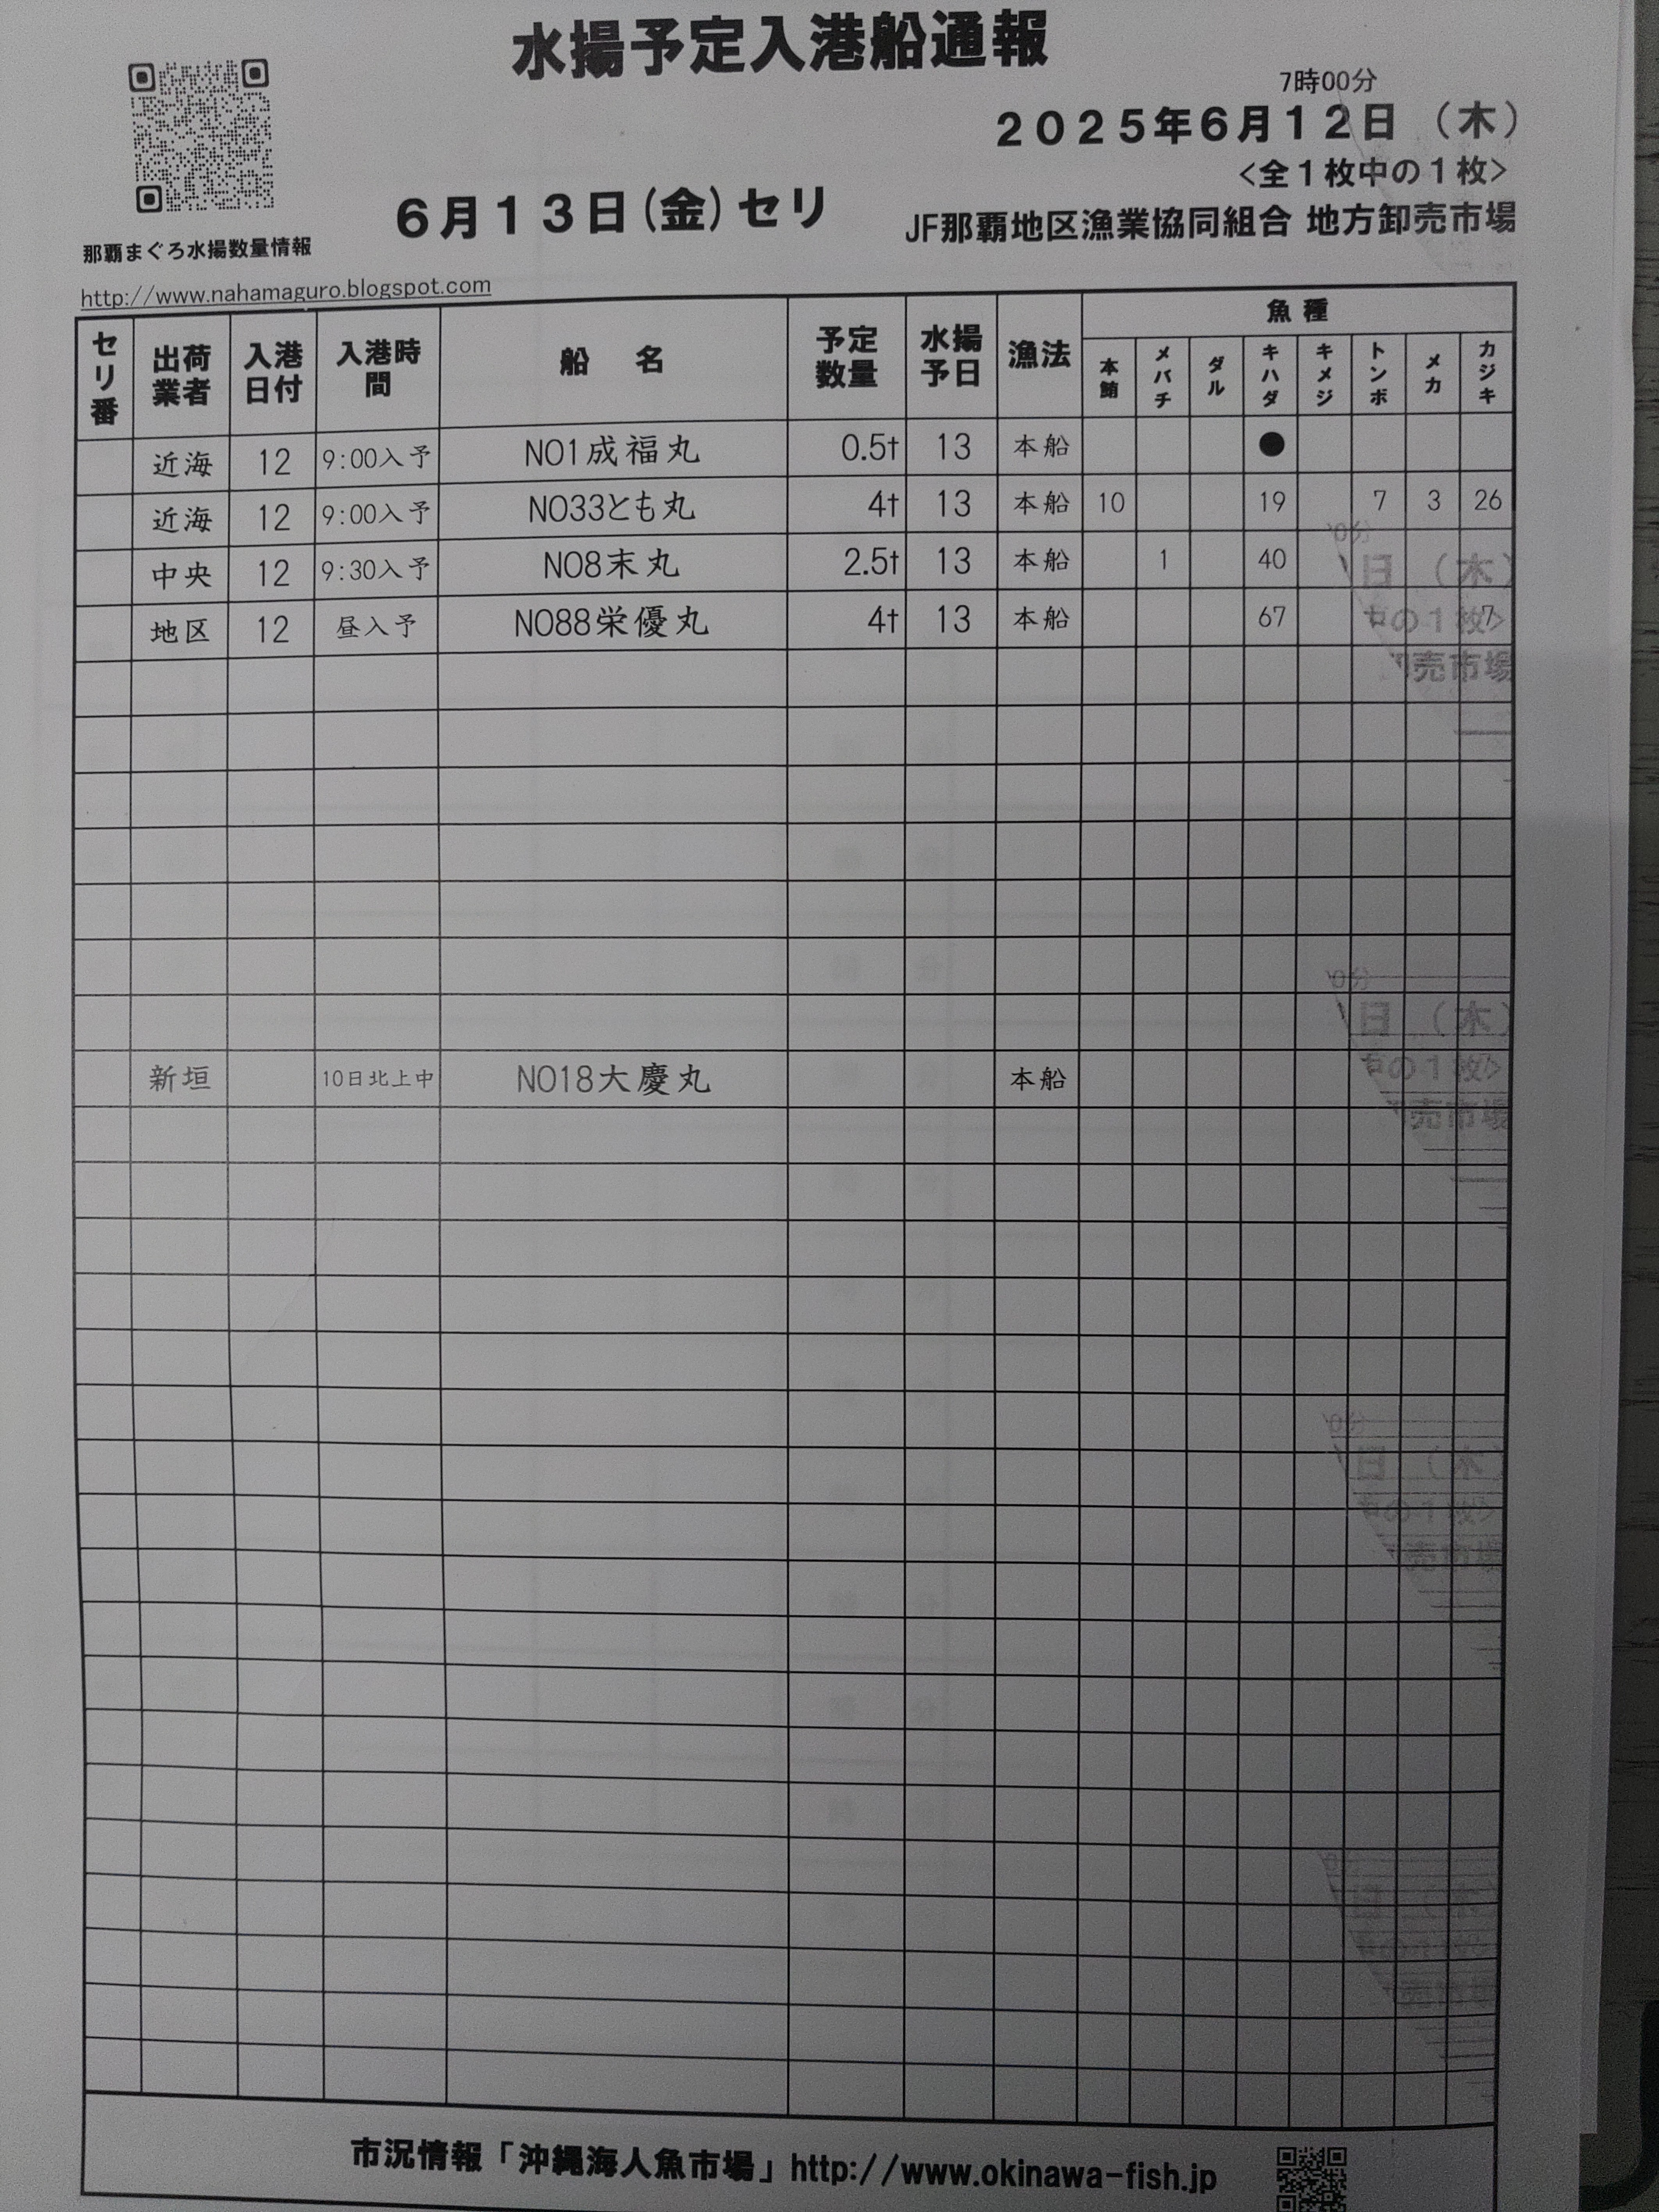 水揚予定入港船通報
7時00分
2025年6月12日（木）
<全1枚中の1枚>
6月13日(金)セリ
JF那覇地区漁業協同組合 地方卸売市場
那覇まぐろ水揚数量情報
http://www.nahamaguro.blogspot.com
セリ番 出荷業者 入港日付 入港時間 船名 予定数量 水揚予日 漁法 魚種
本鮪 メバチ ダル キハダ キメジ トンボ メカ カジキ
近海 12 9:00入予 NO1成福丸 0.5t 13 本船 ●
近海 12 9:00入予 NO33とも丸 4t 13 本船 10 19 7 3 26
中央 12 9:30入予 NO8末丸 2.5t 13 本船 1 40
地区 12 昼入予 NO88栄優丸 4t 13 本船 67 7
新垣 10日北上中 NO18大慶丸 本船
市況情報「沖縄海人魚市場」http://www.okinawa-fish.jp